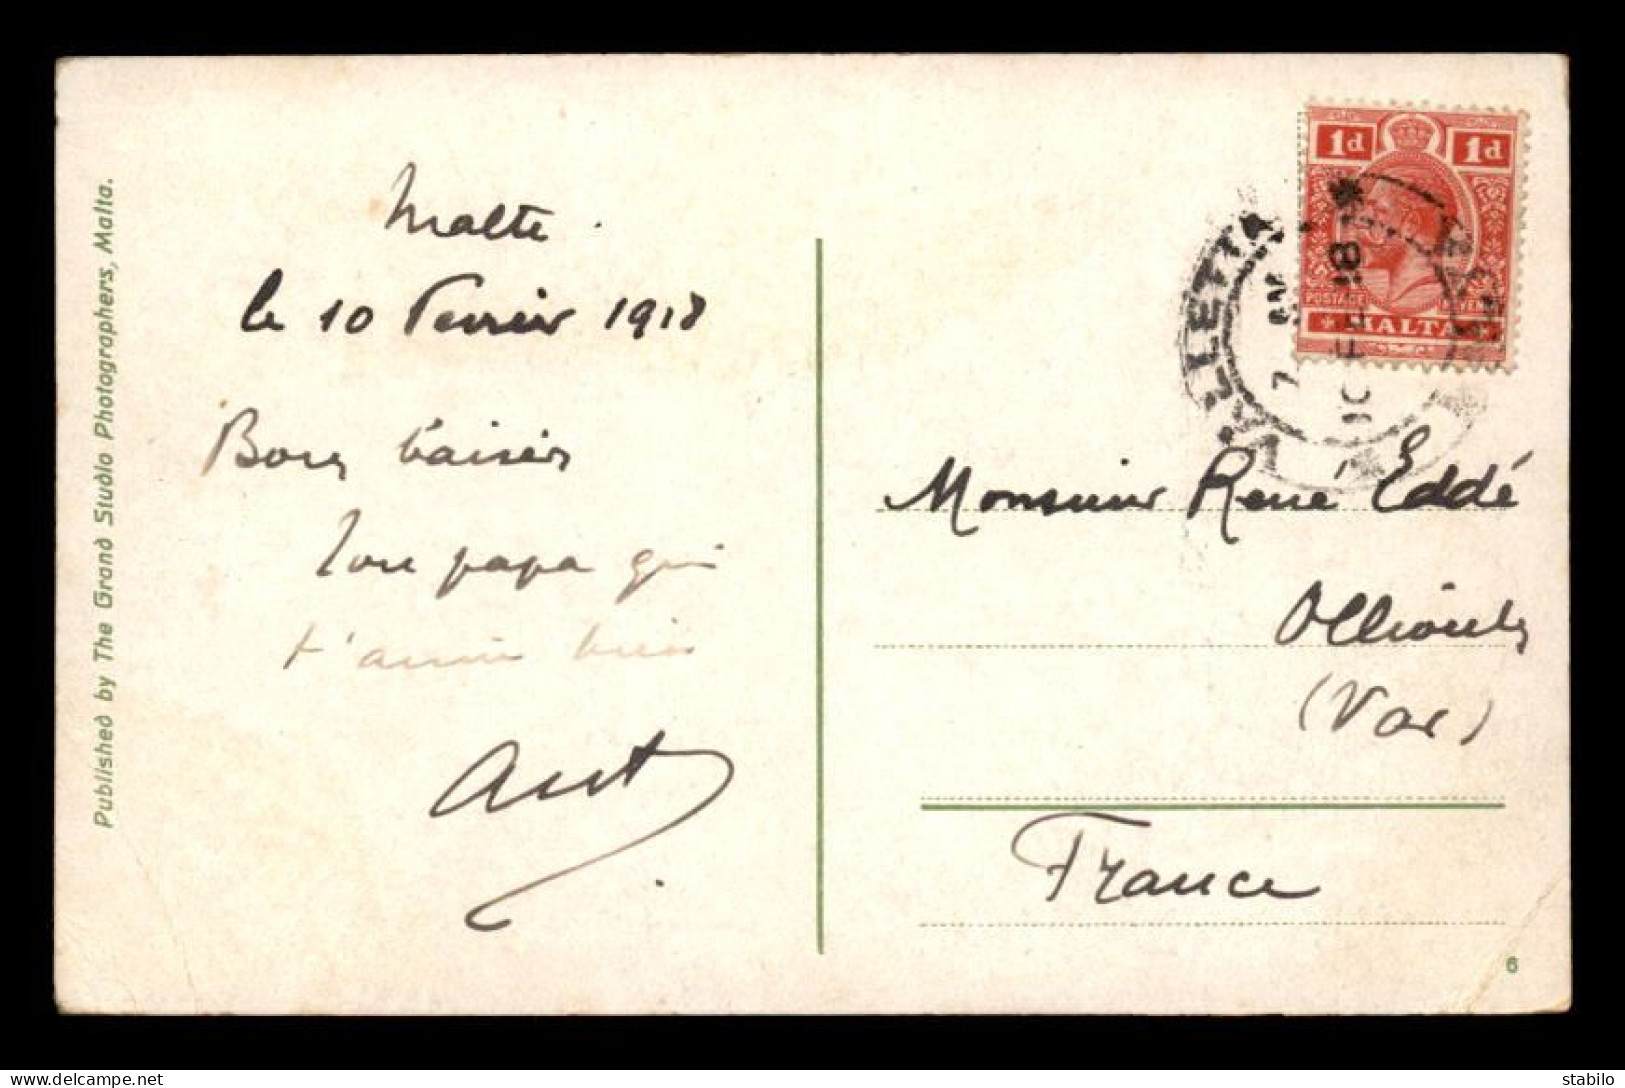 Published by The Grand Studio Photographers, Malta.
Malte.
le 10 Fevrier 1918
Bons baisers
Ton papa qui
t'aime bien
1d 1d
POSTAGE
MALTA
VALLETTA
10 FE 18
Monsieur René Eddé
Ollioules
(Var)
France
6
stabilo - delcampe.net